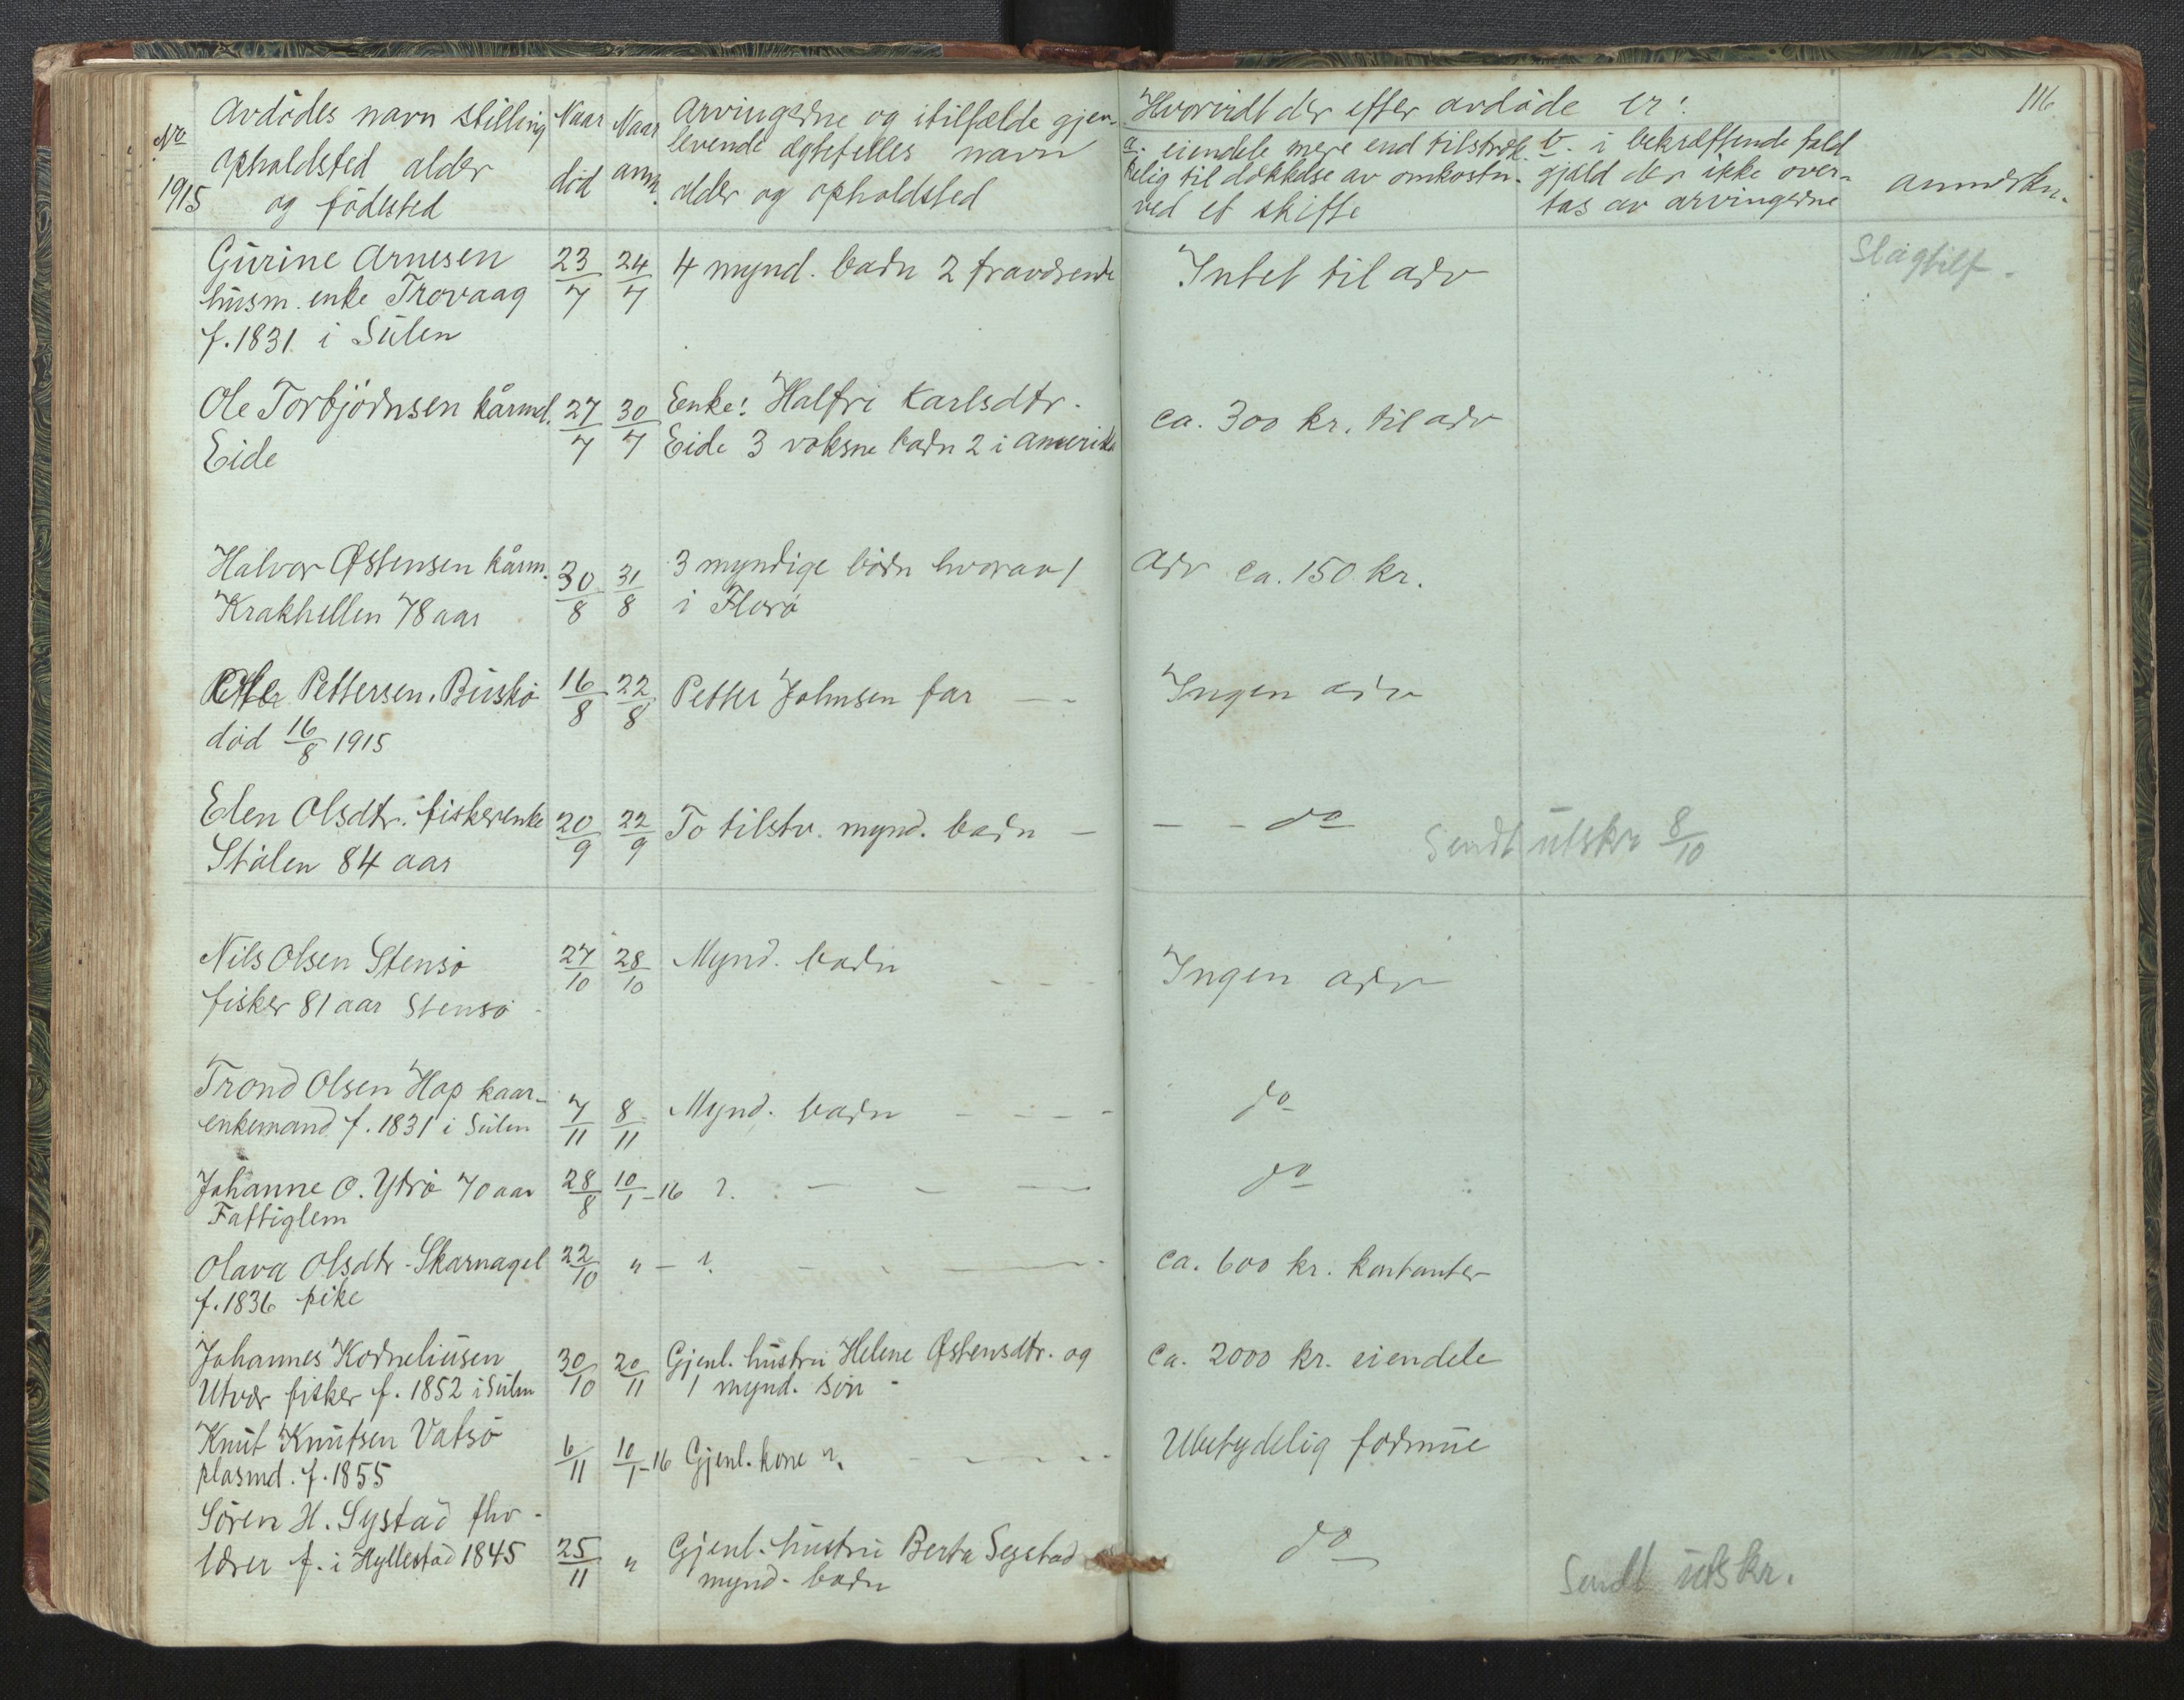 116
No 1915
Avdødes navn stilling
opholdsted alder
og födested
Naar
död
Naar
anm.
Arvingerne og itilfælde gjen-
levende ægtefelles navn
alder og opholdsted
Hvorvidt der efter avdöde er:
a. eiendele mere end tilstræk-
kelig til dækkelse av omkostn.
ved et skifte
b. i bekræftende fald
gjæld der ikke over-
tas av arvingerne
Anmerkn.
Gurine Arnesen
husm. enke Trovaag
f. 1831 i Sulen
23/7
24/7
4 mynd. barn 2 fraværende
Intet til arv
Ole Torbjørnsen kårmd.
Eide
27/7
30/7
Enke: Halfri Karlsdtr.
Eide 3 voksne barn 2 i Amerika
ca. 300 kr. til arv
Halvor Østensen kårm.
Krakhellen 78 aar
30/8
31/8
3 myndige börn hvorav 1
i Florö
Arv ca. 150 kr.
Pettersen. Buskö
död 16/8 1915
16/8
22/8
Petter Johnsen far — -
Ingen arv
Elen Olsdtr. fiskerenke
Stölen 84 aar
20/9
22/9
To tilstv. mynd. barn —
— - - do
Sendt utskr 8/10
Nils Olsen Stensö
fisker 81 aar Stensö
27/10
28/10
Mynd. barn
Ingen arv
Trond Olsen Hop kaar-
enkemand f. 1831 i Sulen
7/11
8/11
Mynd. barn - - - -
do
Johanne O. Ytrö 70 aar
Fattiglem
28/8
10/1-16
?. — - —
do
Olava Olsdtr. Skarnagel
f. 1836 pike
22/10
" - ?.
ca. 600 kr. kontanter
Johannes Korneliusen
Utvær fisker f. 1852 i Sulen
30/10
20/11
Gjenl. hustru Helene Østensdtr. og
1 mynd. sön -
ca. 2000 kr. eiendele
Knut Knutsen Vatsö
plasmd. f. 1855
6/11
10/1-16
Gjenl. kone ?.
Ubetydelig formue
Sören H. Systad fhv.
lærer f. i Hyllestad 1845
25/11
"
Gjenl. hustru Berta Systad
mynd. barn
do
Sendt utskr.